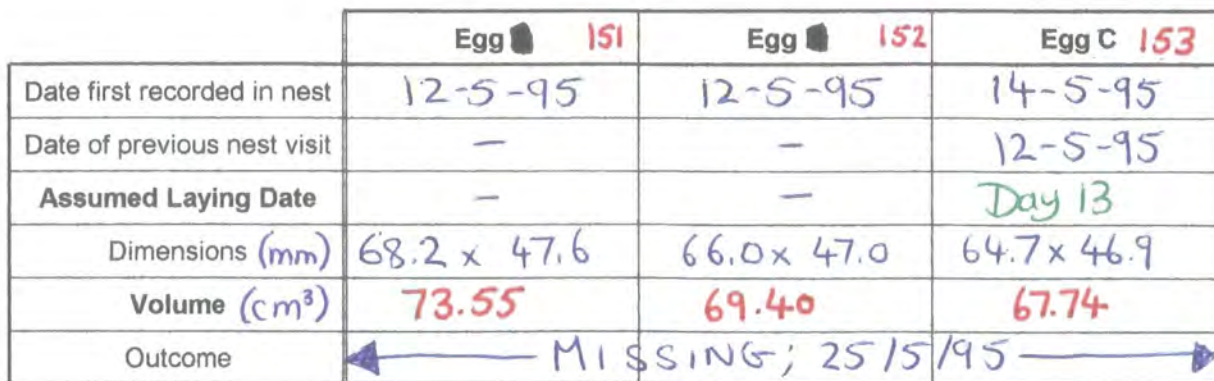 Egg 151 Egg 152 Egg C 153
Date first recorded in nest 12-5-95 12-5-95 14-5-95
Date of previous nest visit – – 12-5-95
Assumed Laying Date – – Day 13
Dimensions (mm) 68.2 x 47.6 66.0 x 47.0 64.7 x 46.9
Volume (cm³) 73.55 69.40 67.74
Outcome MISSING; 25/5/95